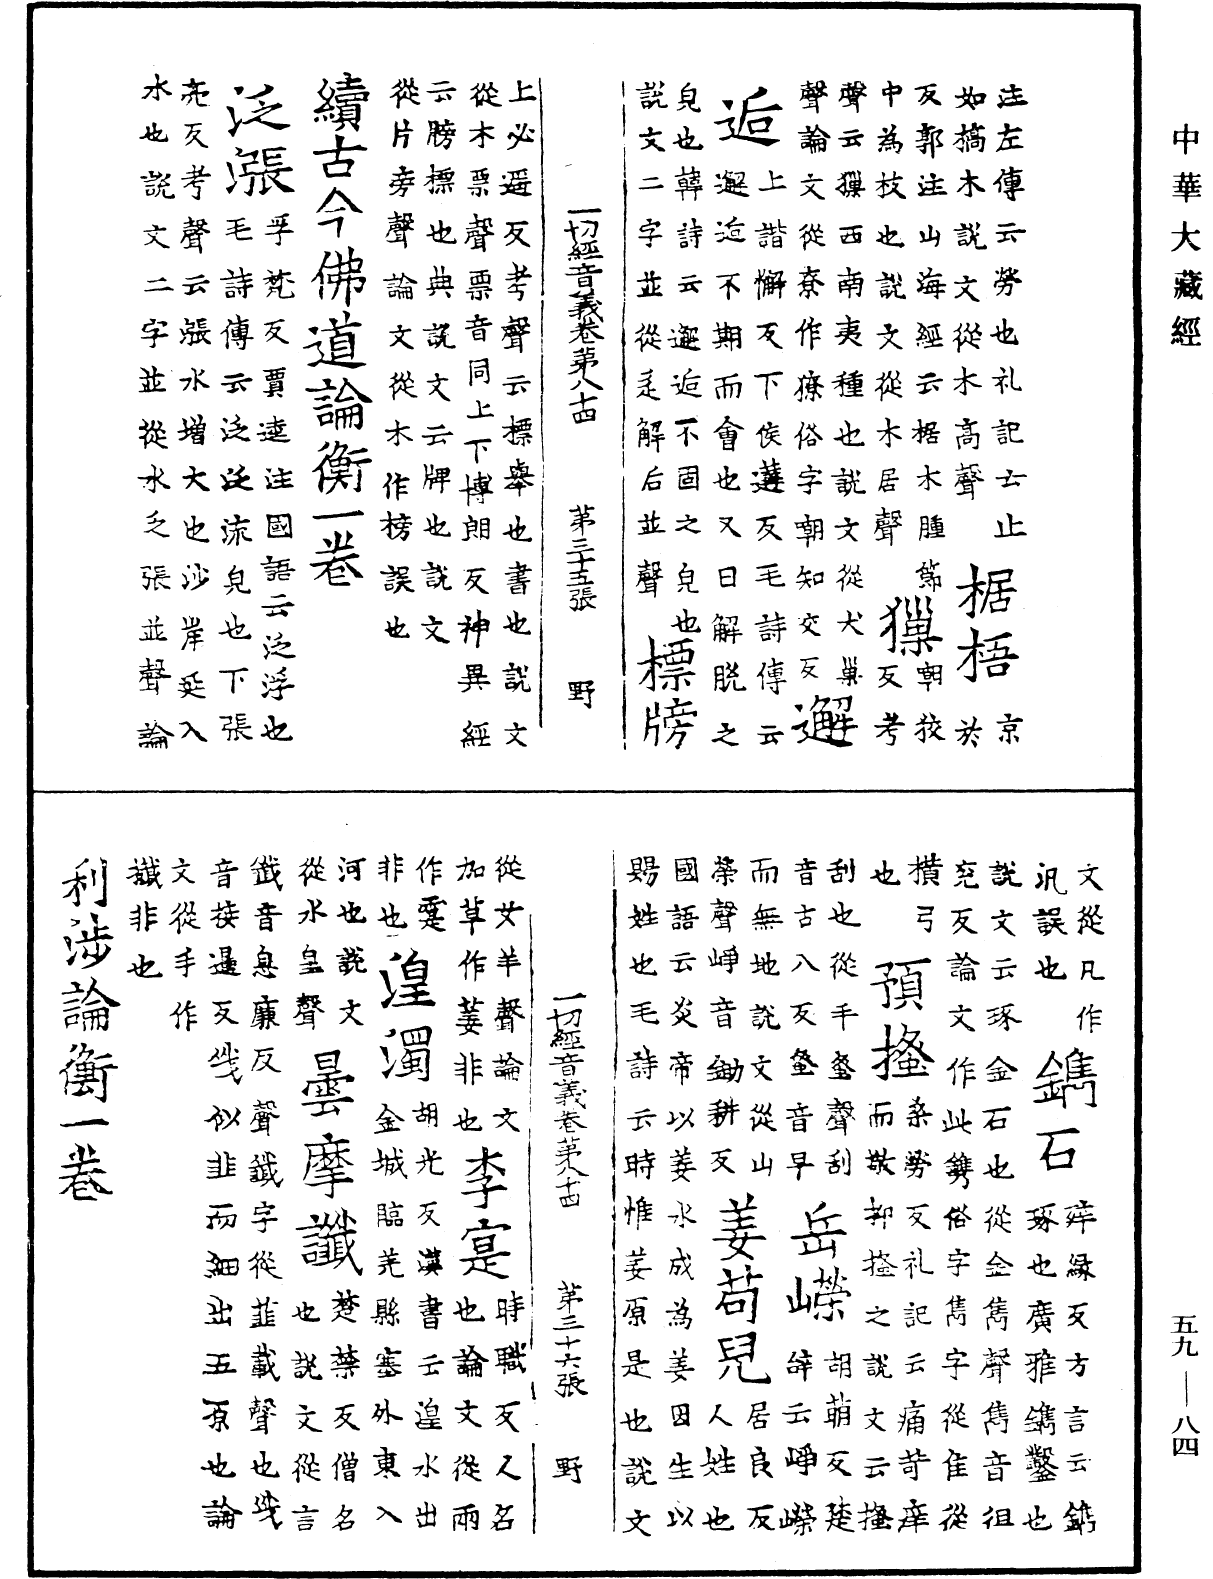 中華大藏經
注左傳云勞也礼記云止京
如槁木說文從木高聲 椐梧 於
反郭注山海經云椐木腫節
中為枝也說文從木居聲 獵 朝狡反考
聲云獵西南夷種也說文從犬巢
聲論文從尞作獠俗字嘲知交反 邂
逅 上諧懈反下侯遘反毛詩傳云
邂逅不期而會也又曰解脫之
皃也韓詩云邂逅不固之皃也
說文二字並從辵解后並聲 標牓
一切經音義卷第八十四 第三十五張 野
上必遥反考聲云標舉也書也說文
從木票聲票音同上下博朗反神異經
云牓標也典說文云牌也說文
從片旁聲論文從木作榜誤也
續古今佛道論衡一卷
泛漲 孚梵反賈逵注國語云泛浮也
毛詩傳云泛泛流皃也下張
亮反考聲云漲水增大也沙岸延入
水也說文二字並從水乏張並聲論
文從凡作汎誤也 鐫石 䘒緣反方言云鐫
琢也廣雅鐫鑿也
說文云琢金石也從金雋聲雋音徂
兖反論文作此鎸俗字雋字從隹從
橫弓也 預搔 桑勞反礼記云痛苛癢
而敬抑搔之說文云搔
刮也從手蚤聲刮
音古八反蚤音早 岳嶸 胡萌反楚
辭云崢嶸
而無地說文從山
榮聲崢音鋤耕反 姜苟兒 居良反
人姓也
國語云炎帝以姜水成為姜因生以
賜姓也毛詩云時惟姜原是也說文
一切經音義卷第八十四 第三十六張 野
從女羊聲論文
加草作䕬非也 李寔 時職反人名
也論文從雨
作霔
非也 湟濁 胡光反漢書云湟水出
金城臨羌縣塞外東入
河也說文
從水皇聲 曇摩讖 楚禁反僧名
也說文從言
韱音息廉反聲讖字從韭㦰聲也㦰
音接邏反㦰似韭而細出五原也論
文從手作
䜟非也
利涉論衡一卷
五九—八四